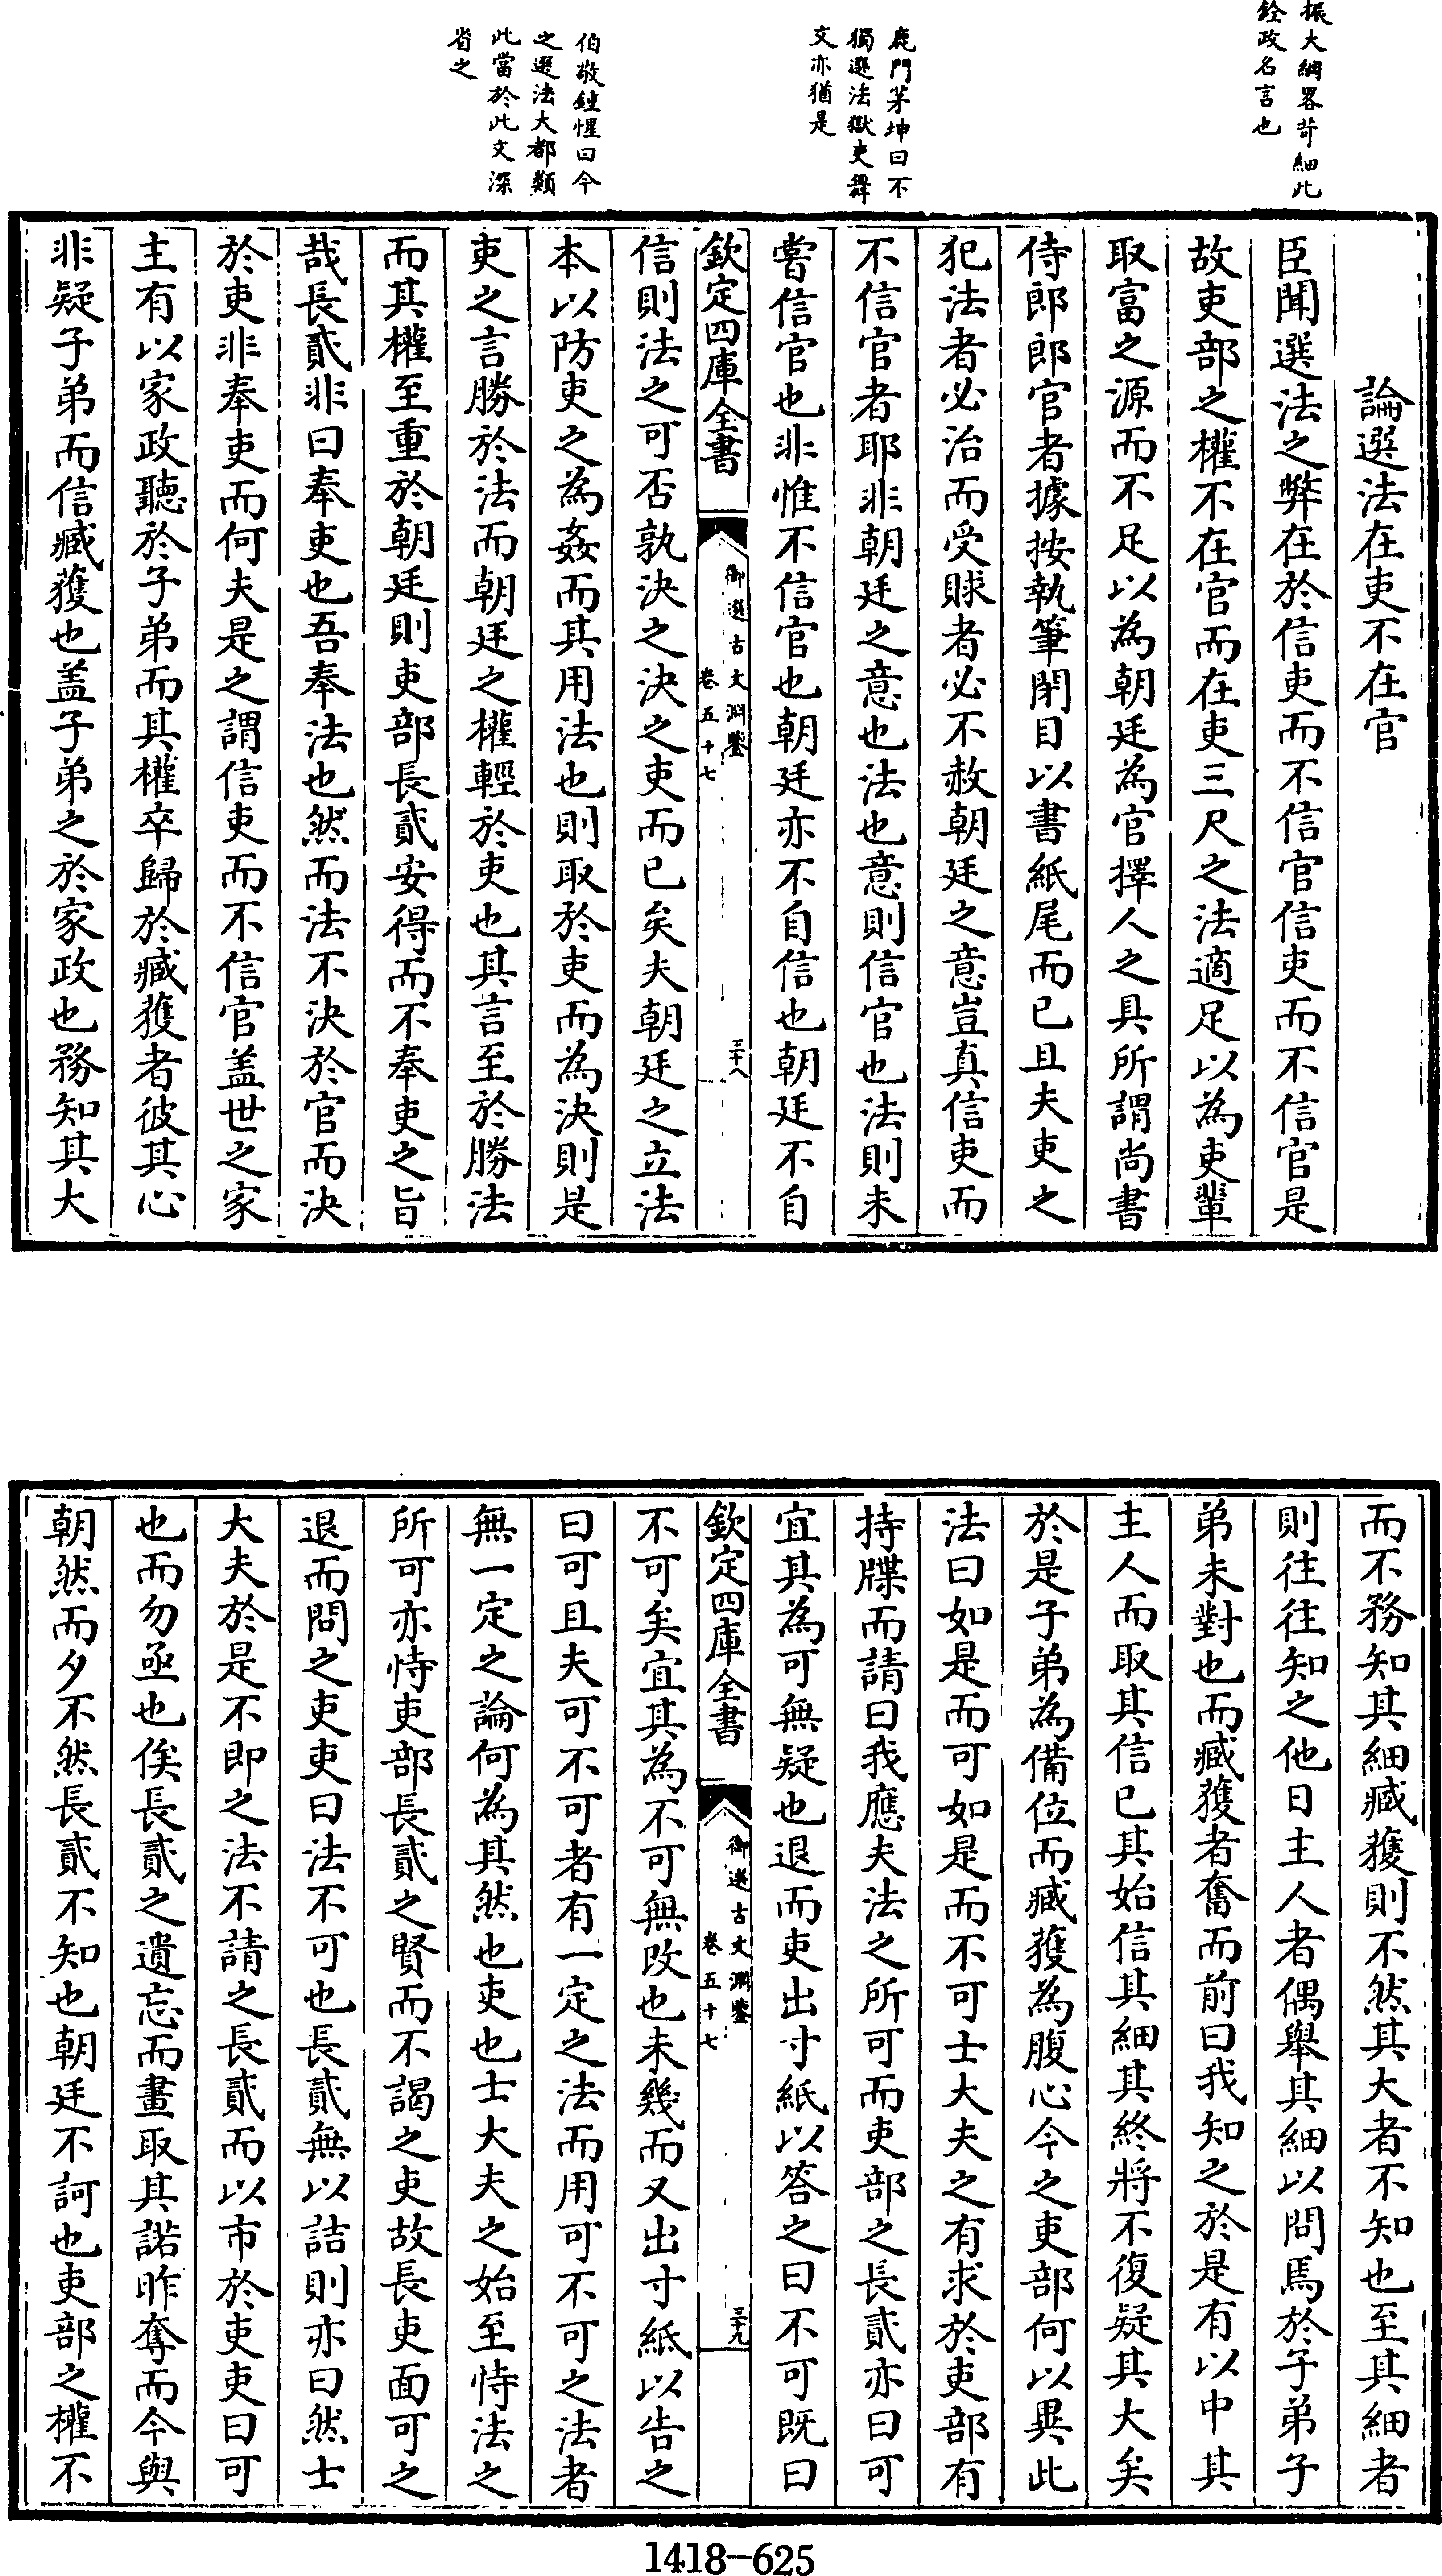 振大綱畧苛細此
銓政名言也
鹿門茅坤曰不
獨選法獄吏舞
文亦猶是
伯敬鍾惺曰今
之選法大都類
此當於此文深
省之
論選法在吏不在官
臣聞選法之弊在於信吏而不信官信吏而不信官是
故吏部之權不在官而在吏三尺之法適足以為吏輩
取富之源而不足以為朝廷為官擇人之具所謂尚書
侍郎郎官者據按執筆閉目以書紙尾而已且夫吏之
犯法者必治而受賕者必不赦朝廷之意豈真信吏而
不信官者耶非朝廷之意也法也意則信官也法則未
嘗信官也非惟不信官也朝廷亦不自信也朝廷不自
欽定四庫全書
御選古文淵鑒
卷五十七
三十八
信則法之可否孰決之決之吏而已矣夫朝廷之立法
本以防吏之為姦而其用法也則取於吏而為決則是
吏之言勝於法而朝廷之權輕於吏也其言至於勝法
而其權至重於朝廷則吏部長貳安得而不奉吏之旨
哉長貳非曰奉吏也吾奉法也然而法不決於官而決
於吏非奉吏而何夫是之謂信吏而不信官盖世之家
主有以家政聽於子弟而其權卒歸於臧獲者彼其心
非疑子弟而信臧獲也盖子弟之於家政也務知其大
而不務知其細臧獲則不然其大者不知也至其細者
則往往知之他日主人者偶舉其細以問焉於子弟子
弟未對也而臧獲者奮而前曰我知之於是有以中其
主人而取其信已其始信其細其終將不復疑其大矣
於是子弟為備位而臧獲為腹心今之吏部何以異此
法曰如是而可如是而不可士大夫之有求於吏部有
持牒而請曰我應夫法之所可而吏部之長貳亦曰可
宜其為可無疑也退而吏出寸紙以答之曰不可既曰
欽定四庫全書
御選古文淵鑒
卷五十七
三十九
不可矣宜其為不可無改也未幾而又出寸紙以告之
曰可且夫可不可者有一定之法而用可不可之法者
無一定之論何為其然也吏也士大夫之始至恃法之
所可亦恃吏部長貳之賢而不謁之吏故長吏面可之
退而問之吏吏曰法不可也長貳無以詰則亦曰然士
大夫於是不即之法不請之長貳而以市於吏吏曰可
也而勿亟也俟長貳之遺忘而畫取其諾昨奪而今與
朝然而夕不然長貳不知也朝廷不訶也吏部之權不
1418-625